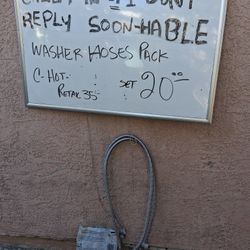 I DON'T
REPLY SOON-HABLE
WASHER HOSES PACK
C-HOT-
RETAIL 35 SET 20.00